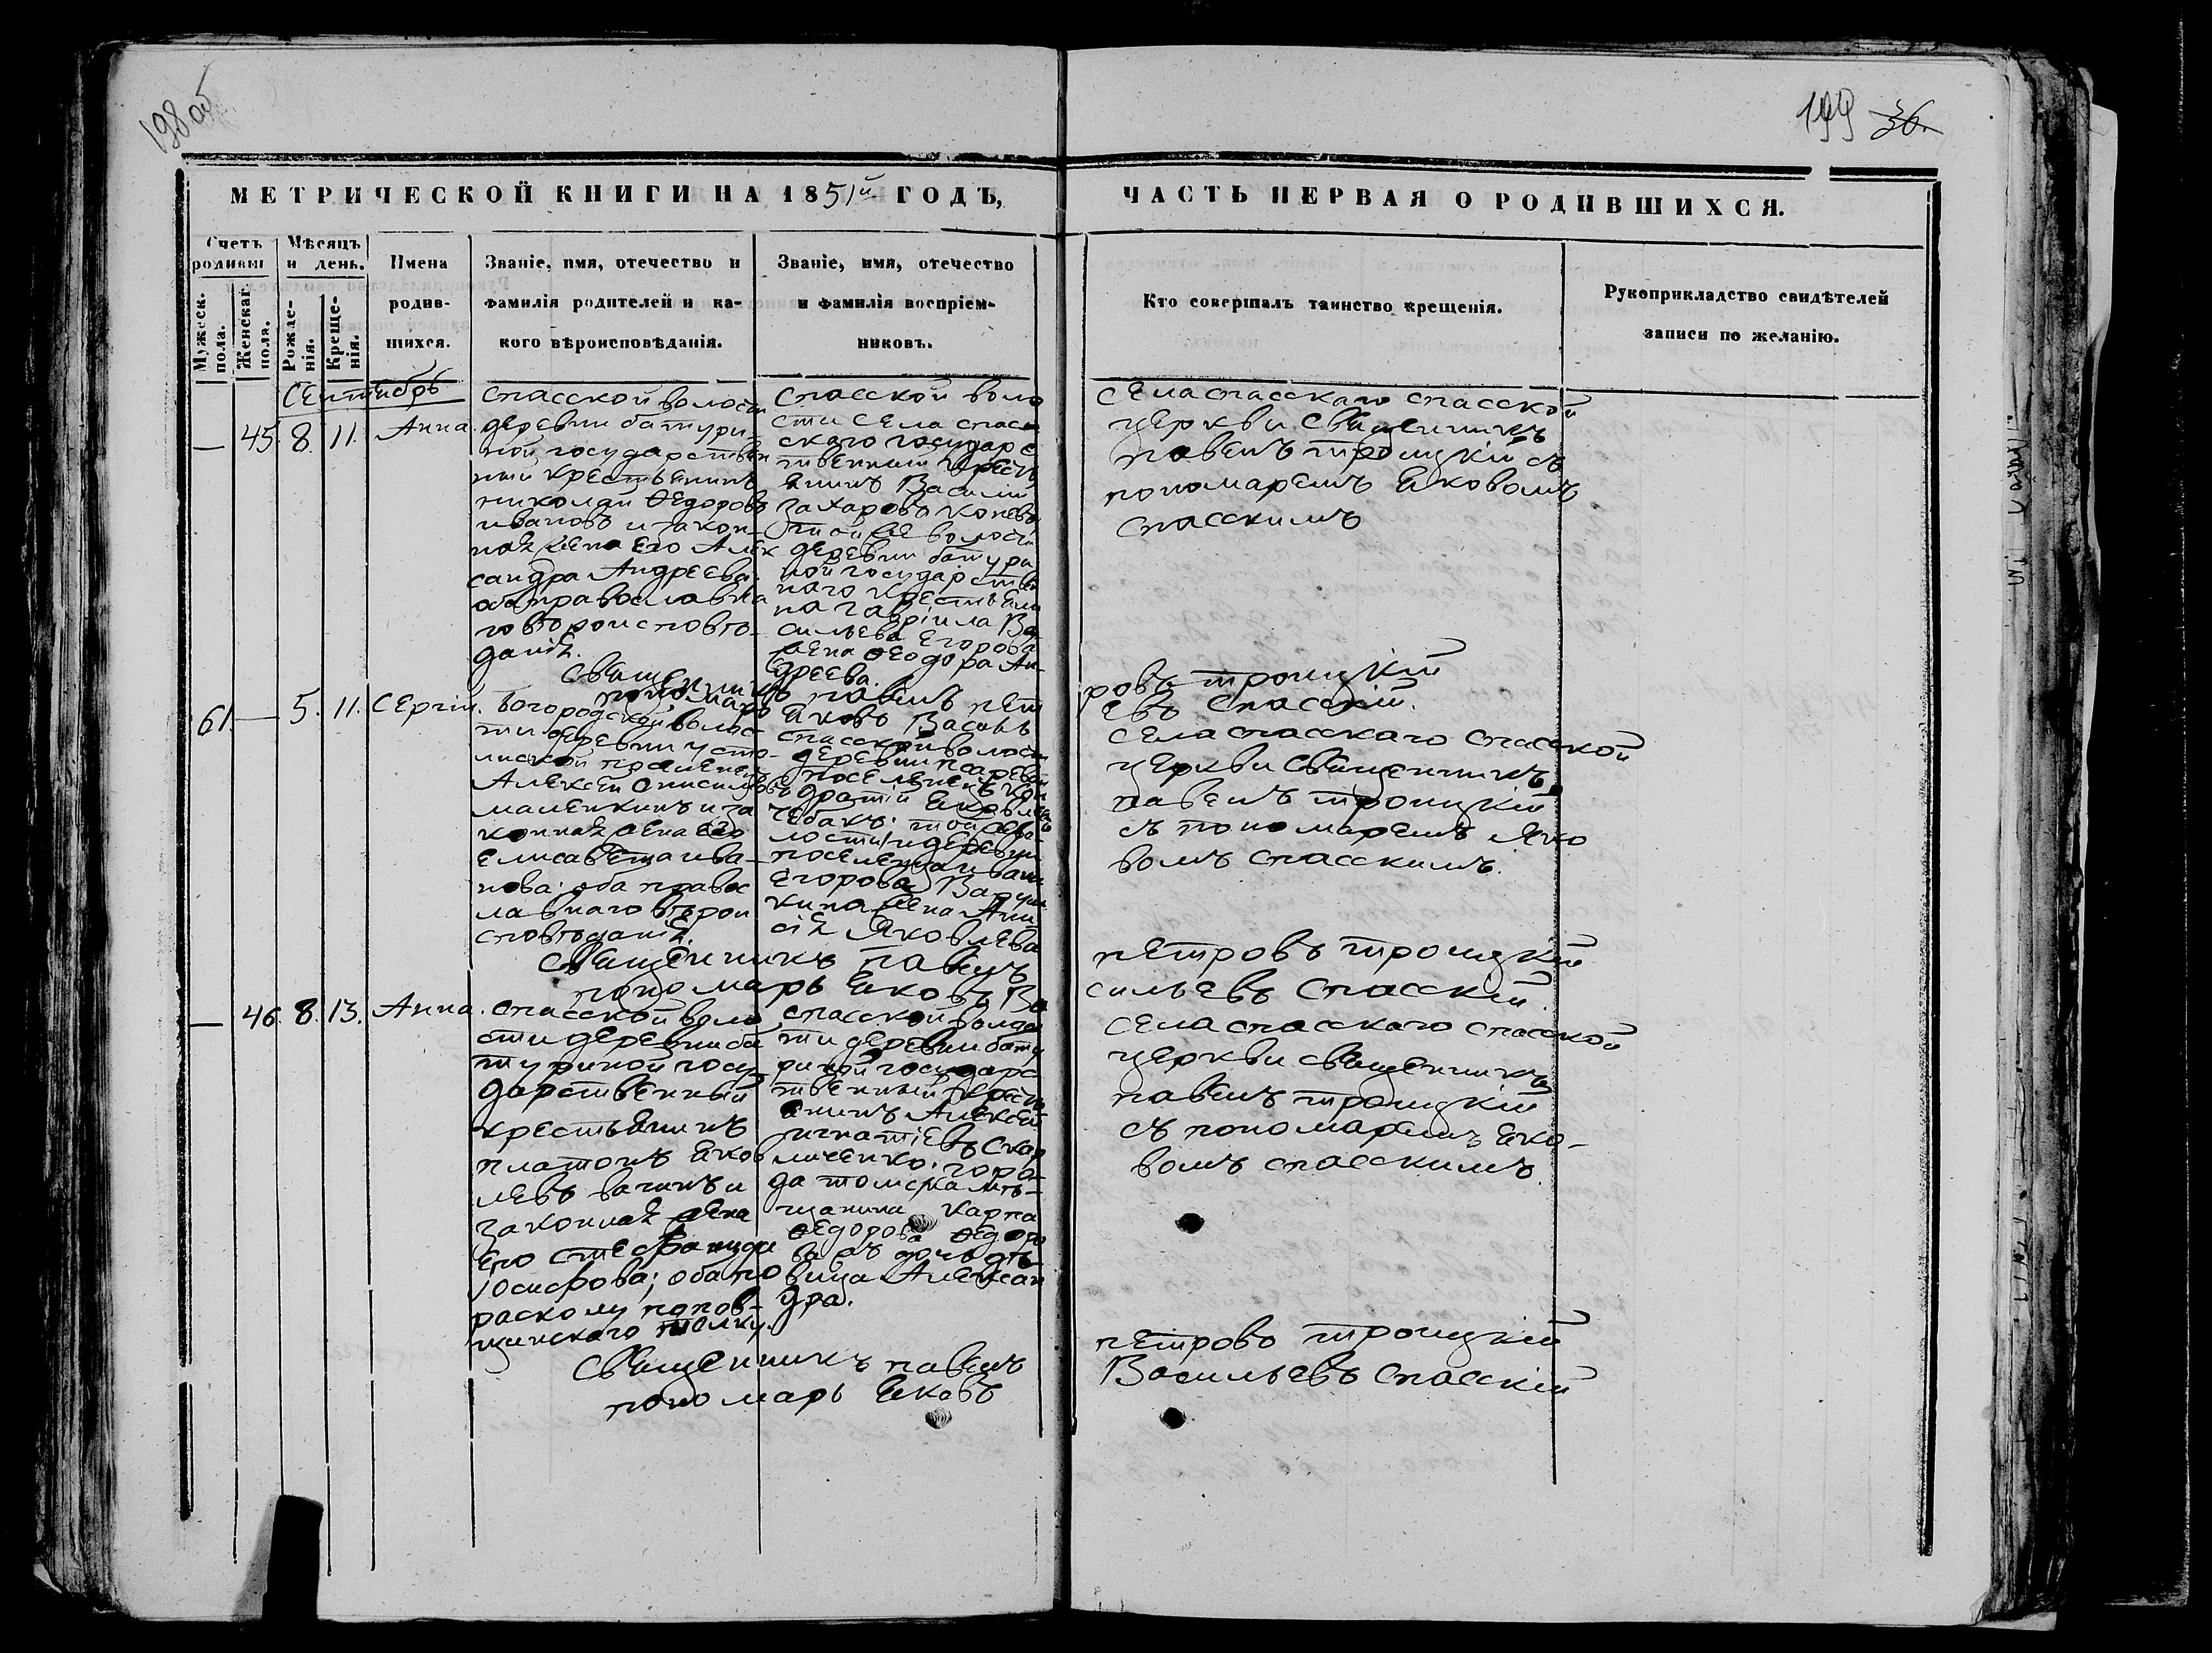 198 об
199 36.
МЕТРИЧЕСКОЙ КНИГИ НА 1851й ГОДЪ,
ЧАСТЬ ПЕРВАЯ О РОДИВШИХСЯ.
Счетъ родивш
Мужеск. пола.
Женскаг. пола.
Мѣсяцъ и день.
Рожде-
нія.
Креще-
нія.
Имена
родив-
шихся.
Званіе, имя, отечество и
фамилія родителей и ка-
кого вѣроисповѣданія.
Званіе, имя, отечество
и фамилія воспріем-
никовъ.
Кто совершалъ таинство крещенія.
Рукоприкладство свидѣтелей
записи по желанію.
Сентябрь
— 45. 8. 11. Анна.
Спасской волости
деревни батури-
ной государствен
ный крестьянинъ
николай Ѳедоровъ
ивановъ и закон-
ная жена его Алек
сандра Андреева.
оба православна
го вѣроисповѣ-
данія.
Спасской воло
сти села спас
скаго государс
твенный крест
янинъ Василій
Захаровъ
той же волости
деревни батури
ной государстве
наго крестьяни
на гавріила Ва
сильева Егорова
жена Ѳеодора Ан-
дреева.
села спасскаго спасской
церкви священникъ
павелъ троицкій съ
пономаремъ яковомъ
спасскимъ
Священникъ павелъ пет
ровъ троицкій
пономарь яковъ Василь
евъ Спасскій.
61. — 5. 11. Сергій.
Богородской волос-
ти деревни усто-
поселенецъ
Алексей
маленкинъ и за
конная жена его
елисавета ива-
нова: оба правос
лавнаго вѣрои
сповѣданія.
спасской волости
деревни
поселенецъ
той же во-
лости и деревни
поселенца ивана
егорова
жена Ани
сія Яковлева
села спасскаго спасской
церкви священникъ
павелъ троицкій
съ пономаремъ яко
вомъ спасскимъ.
Священникъ павелъ
петровъ троицкій
пономарь яковъ Ва
сильевъ спасскій
— 46. 8. 13. Анна.
спасской воло
сти деревни ба
туриной госу-
дарственный
крестьянинъ
платонъ яков
левъ вагинъ и
законная жена
его стефанида
іосифова; оба по
расколу попов-
щинскаго толку.
спасской волос
ти деревни бату
риной государс
твенный крест
янинъ Алексей
игнатіевъ
города томска мѣ-
щанина карпа
Ѳедорова Ѳедоро
ва дочь дѣ-
вица Алексан
дра.
села спасскаго спасской
церкви священникъ
павелъ троицкій
съ пономаремъ яко-
вомъ спасскимъ
Священникъ павелъ
петровъ троицкій
пономарь яковъ
Васильевъ спасскій